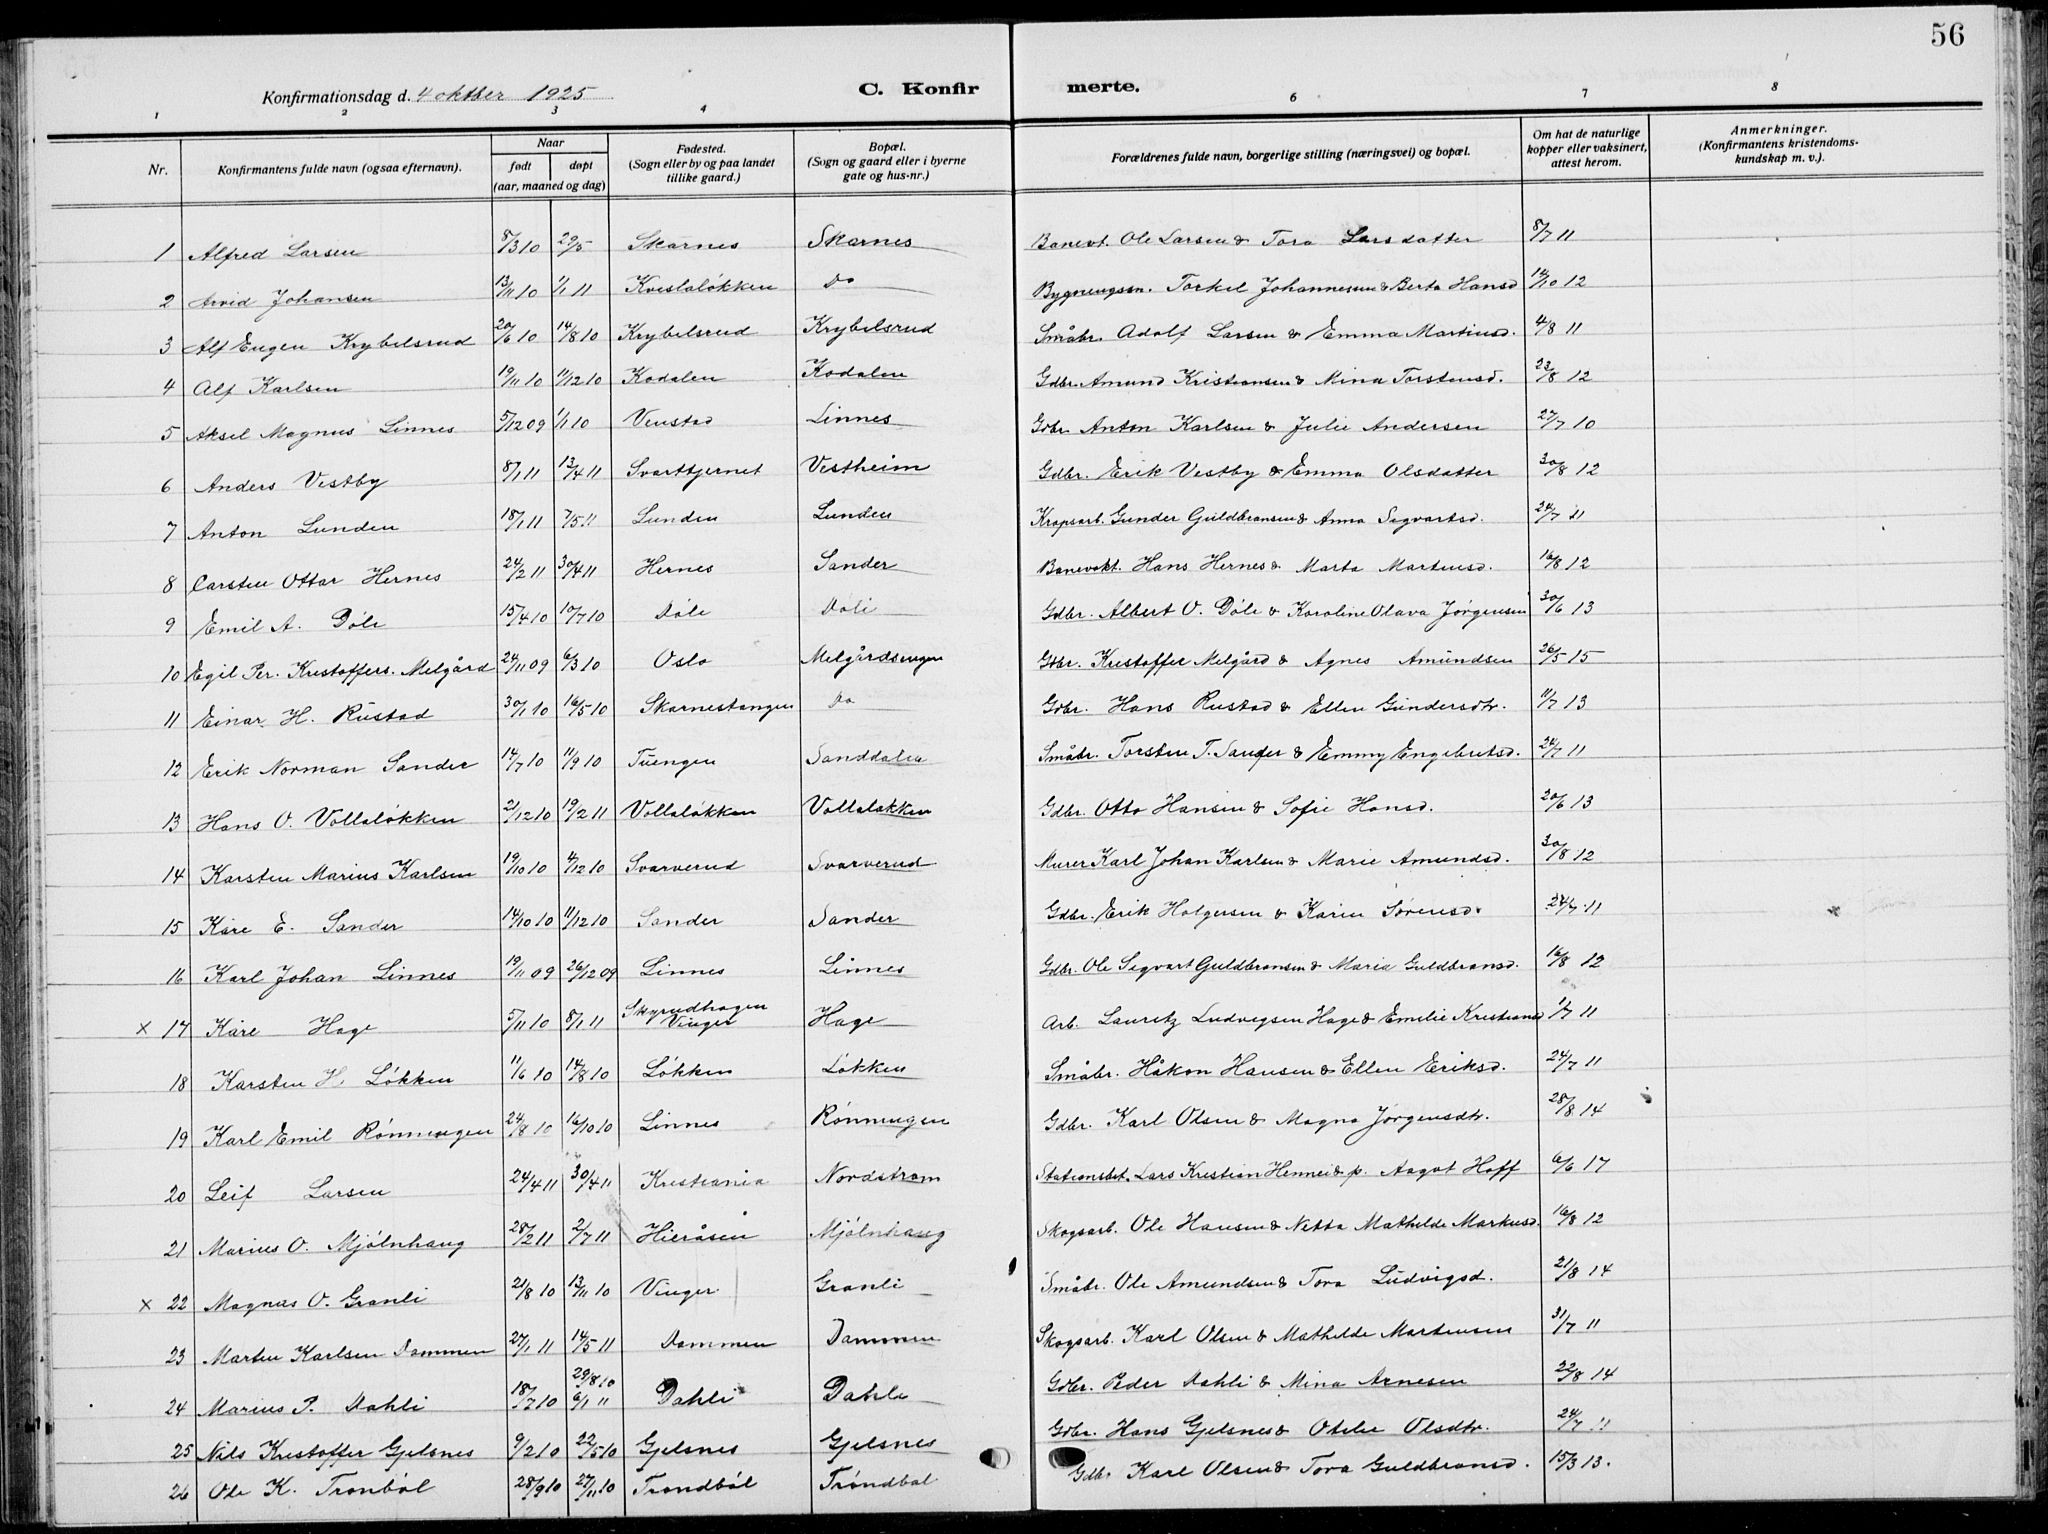 56
Konfirmationsdag d. 4 oktber 1925 C. Konfir merte.
1 2 3 4 6 7 8
Nr. Konfirmantens fulde navn (ogsaa efternavn). Naar født døpt (aar, maaned og dag) Fødested. (Sogn eller by og paa landet tillike gaard.) Bopæl. (Sogn og gaard eller i byerne gate og hus-nr.) Forældrenes fulde navn, borgerlige stilling (næringsvei) og bopæl. Om hat de naturlige kopper eller vaksinert, attest herom. Anmerkninger. (Konfirmantens kristendomskundskap m. v.).
1 Alfred Larsen 8/3 10 29/5 Skarnes Skarnes Banevt. Ole Larsen & Tora Larsdatter 8/7 11
2 Arvid Johansen 13/11 10 1/1 11 Kveslaløkken Do Torkel Johannessen & Berta Hansd 14/10 12
3 Alf Eugen Krybelsrud 20/6 10 14/8 10 Krybelsrud Krybelsrud Småbr. Adolf Larsen & Emma Martinsd. 4/8 11
4 Alf Karlsen 19/11 10 11/12 10 Kodalen Kodalen Gdbr. Amund Kristiansen & Mina Torstensd. 23/8 12
5 Aksel Magnus Linnes 5/12 09 1/1 10 Venstad Linnes Gdbr. Anton Karlsen & Julie Andersen 27/7 10
6 Anders Vestby 8/1 11 13/4 11 Svarttjernet Vestheim Gdbr. Erik Vestby & Emma Olsdatter 30/8 12
7 Anton Lunden 18/1 11 7/5 11 Lunden Lunden Gunder Guldbransen & Anna Sigvartsd. 24/7 11
8 Carsten Ottar Hernes 24/2 11 30/4 11 Hernes Sander Banevokt. Hans Hernes & Marta Martinsd. 16/8 12
9 Emil A. Døli 15/4 10 10/7 10 Døli Døli Gdbr. Albert O. Døli & Karoline Olava Jørgensen 30/6 13
10 Egil Per. Kristoffers. Melgård 24/11 09 6/3 10 Oslo Melgårdsengen Gdbr. Kristoffer Melgård & Agnes Amundsen 26/5 15
11 Einar H. Rustad 30/1 10 16/5 10 Skarnestangen Do Gdbr. Hans Rustad & Ellen Gundersdtr. 11/7 13
12 Erik Norman Sander 14/7 10 11/9 10 Tuengen Sanddalen Småbr. Torsten T. Sander & Emmy Engebretsd. 24/7 11
13 Hans O. Vollaløkken 21/12 10 19/2 11 Vollaløkken Vollaløkken Gdbr. Otto Hansen & Sofie Hansd. 20/6 13
14 Karsten Marius Karlsen 19/10 10 4/12 10 Svarverud Svarverud Murer Karl Johan Karlsen & Marie Amundsd. 30/8 12
15 Kåre E. Sander 14/10 10 11/12 10 Sander Sander Gdbr. Erik Holgersen & Karen Sørensd. 24/7 11
16 Karl Johan Linnes 19/11 09 26/12 09 Linnes Linnes Gdbr. Ole Sigvart Guldbransen & Maria Guldbransd. 16/8 12
x 17 Kåre Hage 5/11 10 8/1 11 Skyrudhagen Vinger Hage Arb. Lauritz Ludvigsen Hage & Emilie Kristiansd 1/7 11
18 Karsten H. Løkken 11/6 10 14/8 10 Løkken Løkken Småbr. Håkon Hansen & Ellen Eriksd. 24/7 11
19 Karl Emil Rønningen 24/8 10 16/10 10 Linnes Rønningen Gdbr. Karl Olsen & Magna Jørgensdtr. 28/8 14
20 Leif Larsen 24/4 11 30/4 11 Kristiania Nordstrøm Stationsbet. Lars Kristian & p. Aagot Hoff 6/6 17
21 Marius O. Mjølnhaug 28/2 11 2/7 11 Hieråsen Mjølnhaug Skogsarb. Ole Hansen & Netta Mathilde Markusd. 16/8 12
x 22 Magnus O. Granli 21/8 10 13/11 10 Vinger Granli Småbr. Ole Amundsen & Tora Ludvigsd. 21/8 14
23 Marten Karlsen Dammen 27/1 11 14/5 11 Dammen Dammen Skogsarb. Karl Olsen & Mathilde Martensen 31/7 11
24 Marius P. Dahli 18/7 10 29/8 10 6/1 11 Dahli Dahli Gdbr. Peder Dahli & Mina Arnesen 22/8 14
25 Nils Kristoffer Gjelsnes 9/2 10 22/5 10 Gjelsnes Gjelsnes Gdbr. Hans Gjelsnes & Otelie Olsdtr. 24/7 11
26 Ole K. Tronbøl 28/9 10 27/11 10 Trondbøl Trøndbøl Gdbr. Karl Olsen & Tora Guldbransd. 15/3 13.